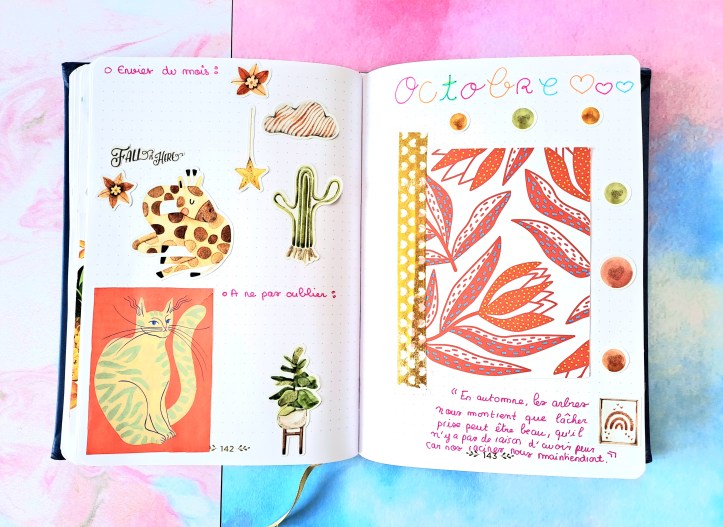 o Envies du mois :
FALL is HERE
o A ne pas oublier :
142
OCTOBRE
"En automne, les arbres
nous montrent que lâcher
prise peut être beau, qu'il
n'y a pas de raison d'avoir peur
car nos racines nous maintiendront."
143